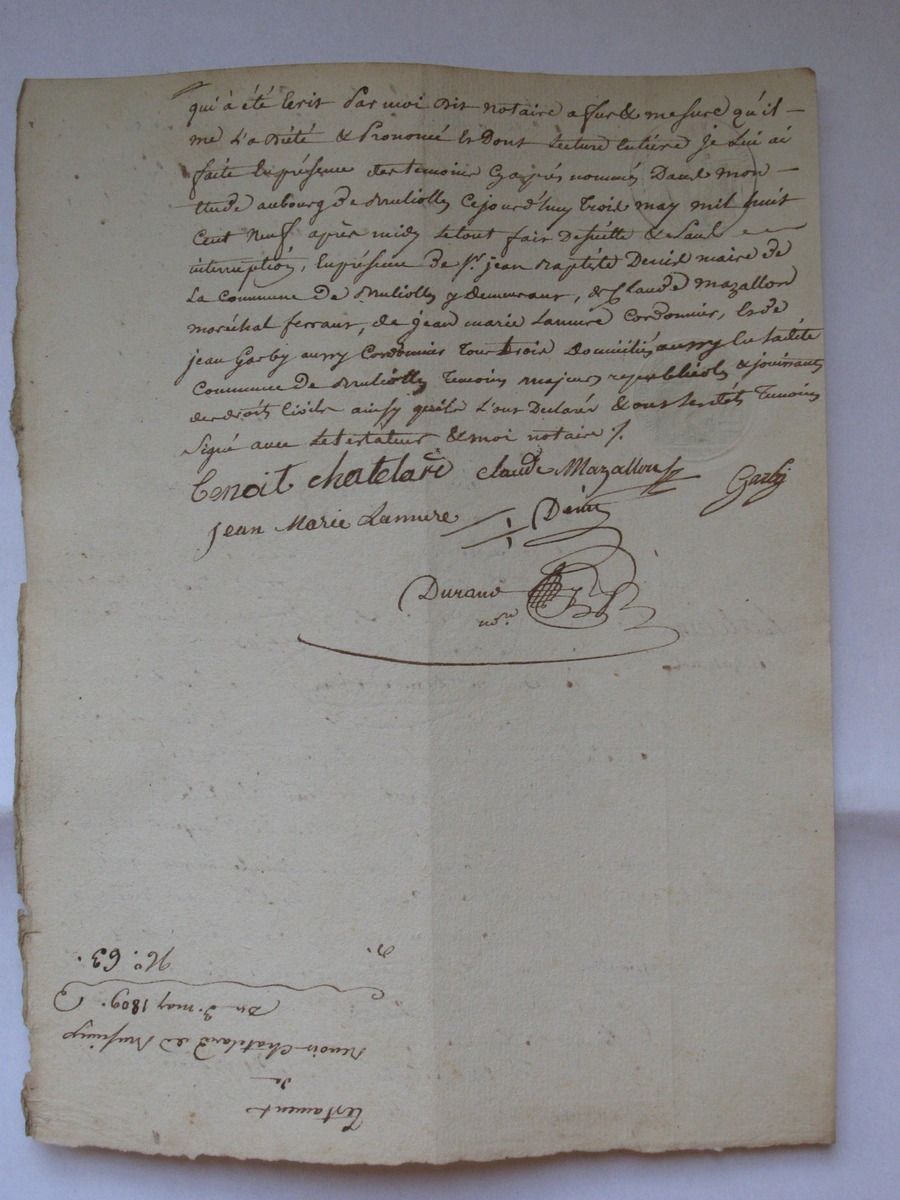 qui à été Ecrit Par moi dit notaire a fur & mesure qu'il
me L'a Dicté & Prononcé Et Dont Lecture Entière Je Lui ai
faite En présence des temoins Cy après nommés Dans mon
Etude au bourg de Brulioles Cejourd'huy Trois may mil huit
Cent Neuf après midy Le tout fait De suitte & Sans
interruption, En présence de Sr. jean Baptiste Denis maire de
La Commune De Brulioles y demeurant, de Claude Mazallon
maréchal ferrant, de jean marie Lannire Cordonnier, Et de
jean Garby aussy Cordonnier Tous trois domiciliés aussy En Ladite
Commune De Brulioles Temoins majeurs & jouissants
des droits Civils ainsy qu'ils L'ont Declaré & ont Lesdits Temoins
Signé avec Le testateur & moi notaire /.
Benoit chatelard claude Mazallon Garby
Jean Marie Lannire Denis
Durand
nore
No. 63.
Du 3. may 1809.
Benoit Chatelard de
de
Testament